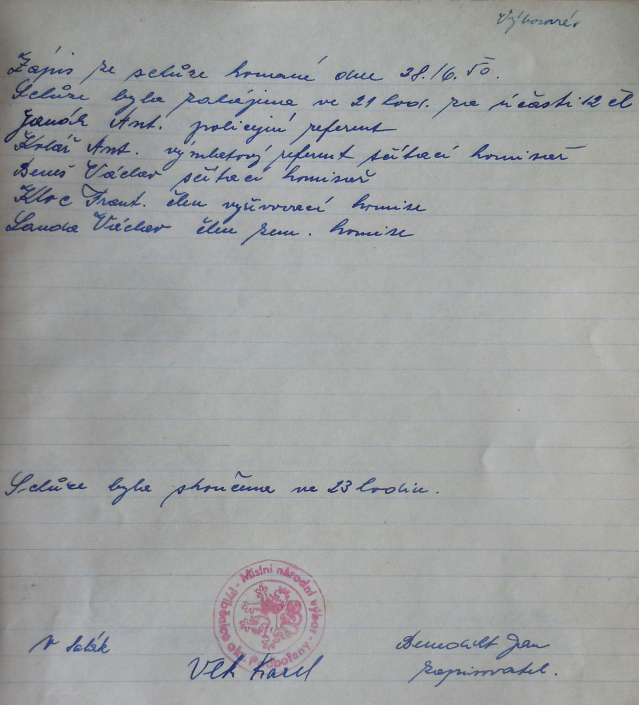 Výborové
Zápis ze schůze konané dne 28./6. 50.
Schůze byla zahájena ve 21 hod. za účasti 12 čl
Janák Ant. policejní referent
Kolář Ant. výmětový referent sčítací komisař
Beneš Václav sčítací komisař
Kloc Frant. člen vyživovací komise
Landa Václav člen zem. komise
Schůze byla skončena ve 23 hodin.
Místní národní výbor
Přiběnice okr. Podbořany
Vlk Karel
Benedikt Jan
zapisovatel.